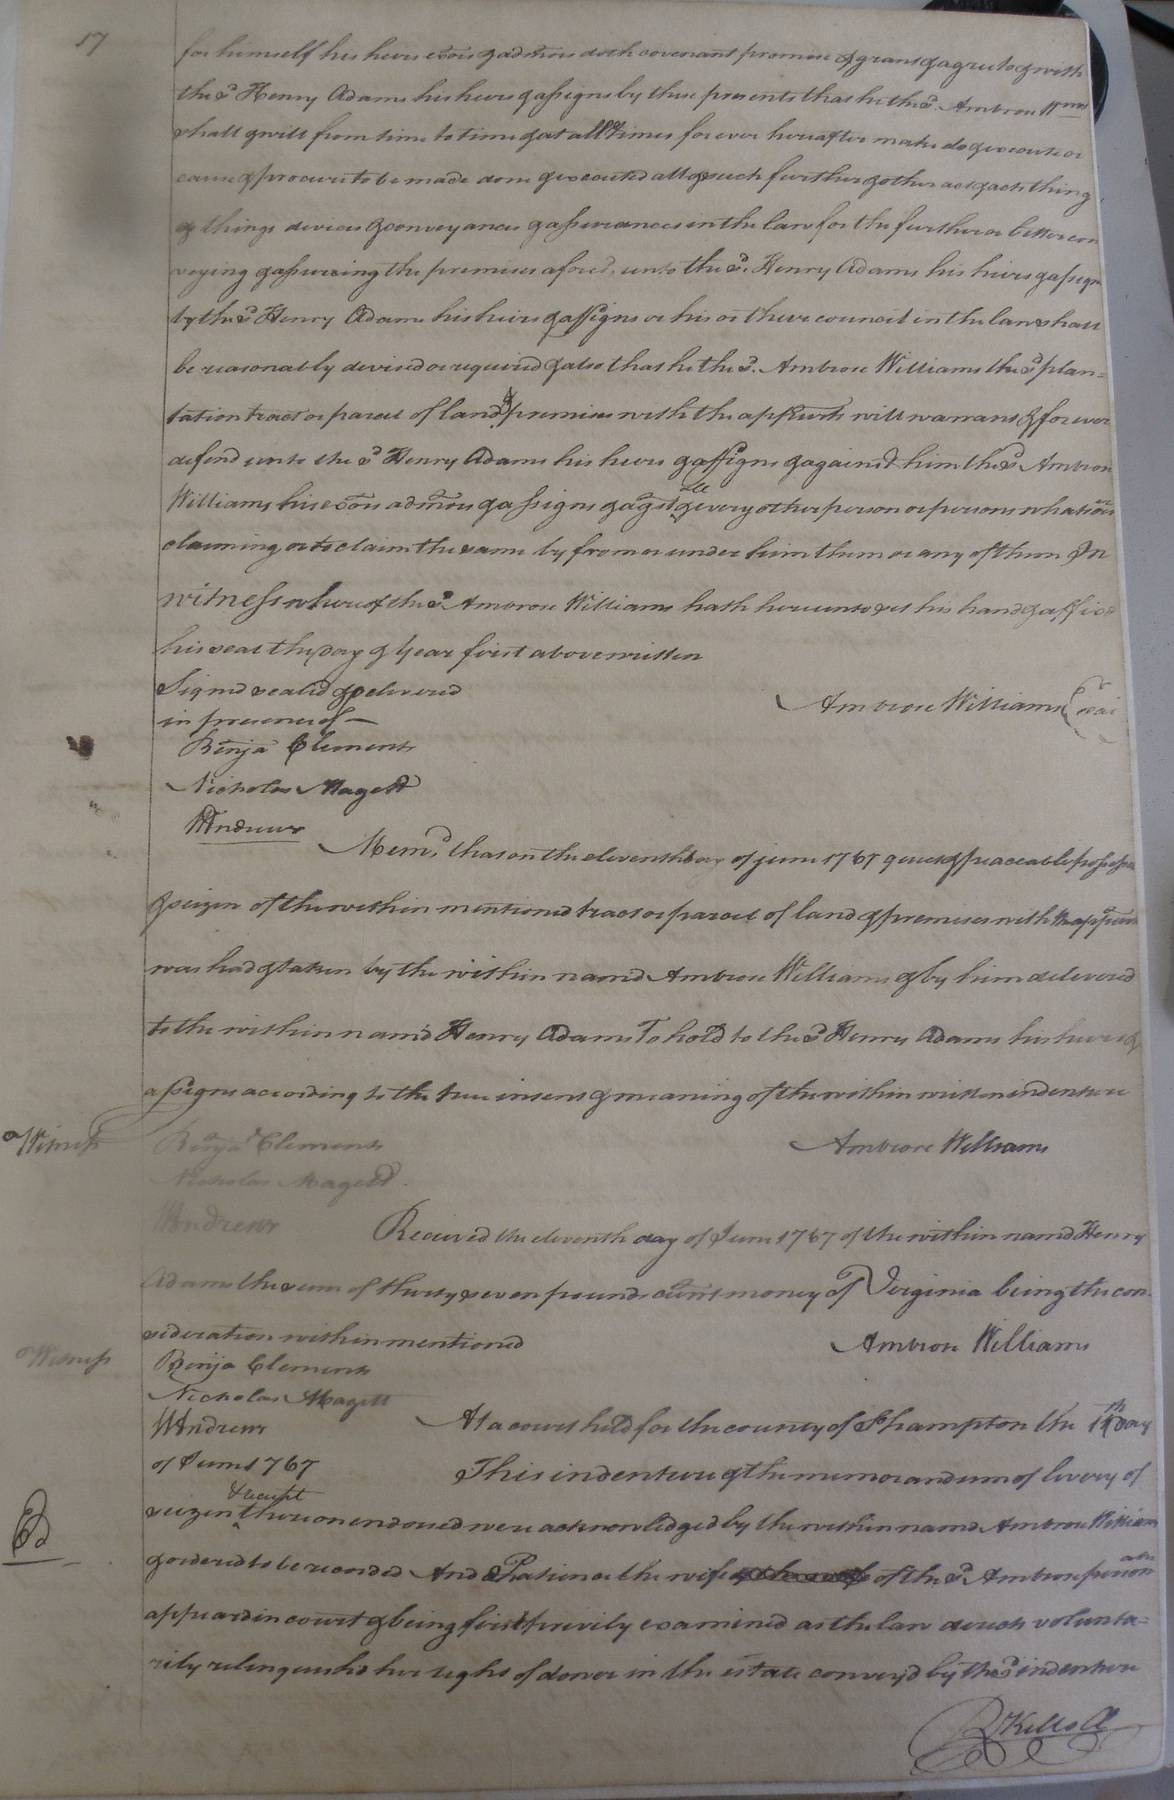 57
for himself his heirs exors & admors doth covenant promise & grant & agree to & with
the sd Henry Adams his heirs & assigns by these presents that he the sd. Ambrose Wms
shall & will from time to time & at all times for ever hereafter make do & execute or
cause & procure to be made done & executed all & such further & other act & acts thing
& things devices & conveyances & assurances in the law for the further or better con
veying & assureing the premises afored. unto the sd. Henry Adams his heirs & assigns
by the sd Henry Adams his heirs & assigns or his or their council in the law shall
be reasonably devised or required & also that he the sd. Ambrose Williams the sd plan=
tation tract or parcel of land & premises with the appurts will warrant & for ever
defend unto the sd Henry Adams his heirs & assigns & against him the sd Ambrose
Williams his exors admors & assigns & agst all & every other person or persons whatsoever
claiming or to claim the same by from or under him them or any of them In
witness whereof the sd Ambrose Williams hath hereunto set his hand & affixed
his seal the day & year first above written
Signed sealed & delivered
in presence of —
Ambrose Williams Seal
Benja Clements
Nicholas Magett
WAndrews
Memd. that on the eleventh day of june 1767 quiet & peaceable possession
& seizen of the within mentioned tract or parcel of land & premises with the appurts
was had & taken by the within named Ambrose Williams & by him delivered
to the within named Henry Adams To hold to the sd Henry Adams his heirs &
assigns according to the true intent & meaning of the within written indenture
Witness Benja Clements
Ambrose Williams
Nicholas Magett.
WAndrews
Received the eleventh day of June 1767 of the within named Henry
Adams the sum of thirty seven pounds currt money of Virginia being the con
sideration within mentioned
Ambrose Williams
Witness Benja Clements
Nicholas Magett
WAndrews
At a court held for the county of Sohampton the 11th day
of June 1767
This indenture & the memorandum of livery of
seizen & receipt thereon endorsed were acknowledged by the within named Ambrose Williams
Ed
& ordered to be recorded And Patience the wife of the sd Ambrose person
ally
appeard in court & being first privily examined as the law directs volunta=
rily relinquishd her right of dower in the estate convey'd by the sd indenture
R Kello Cl